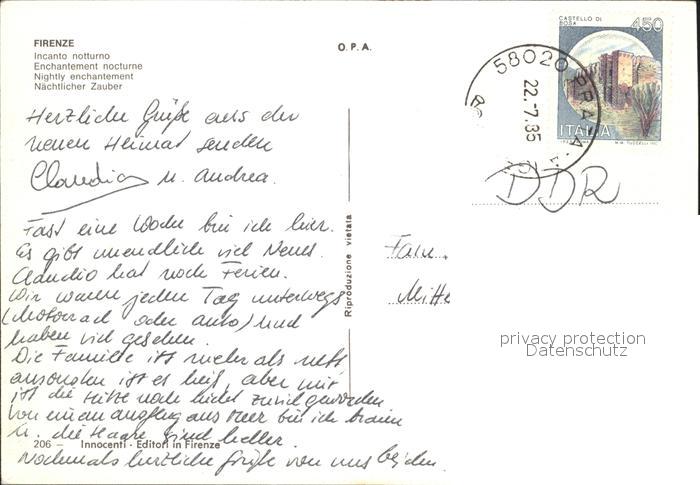 FIRENZE
Incanto notturno
Enchantement nocturne
Nightly enchantement
Nächtlicher Zauber
O.P.A.
CASTELLO DI BOSA
450
ITALIA
58020
22.7.85
DDR
Herzliche Grüße aus der
neuen Heimat senden
Claudio u. Andrea.
Fast eine Woche bin ich hier.
Es gibt unendlich viel Neues.
Claudio hat noch Ferien.
Wir waren jeden Tag unterwegs
(Motorrad oder Auto) und
haben viel gesehen.
Die Familie ist mehr als nett
ansonsten ist es heiß, aber mir
ist die Hitze noch nicht zuviel geworden
Von einem Ausflug ans Meer bin ich braun
u. die Haare sind heller.
Nochmals herzliche Grüße von uns beiden.
Fam.
Mitte
Riproduzione vietata
206 – Innocenti - Editori in Firenze
privacy protection
Datenschutz